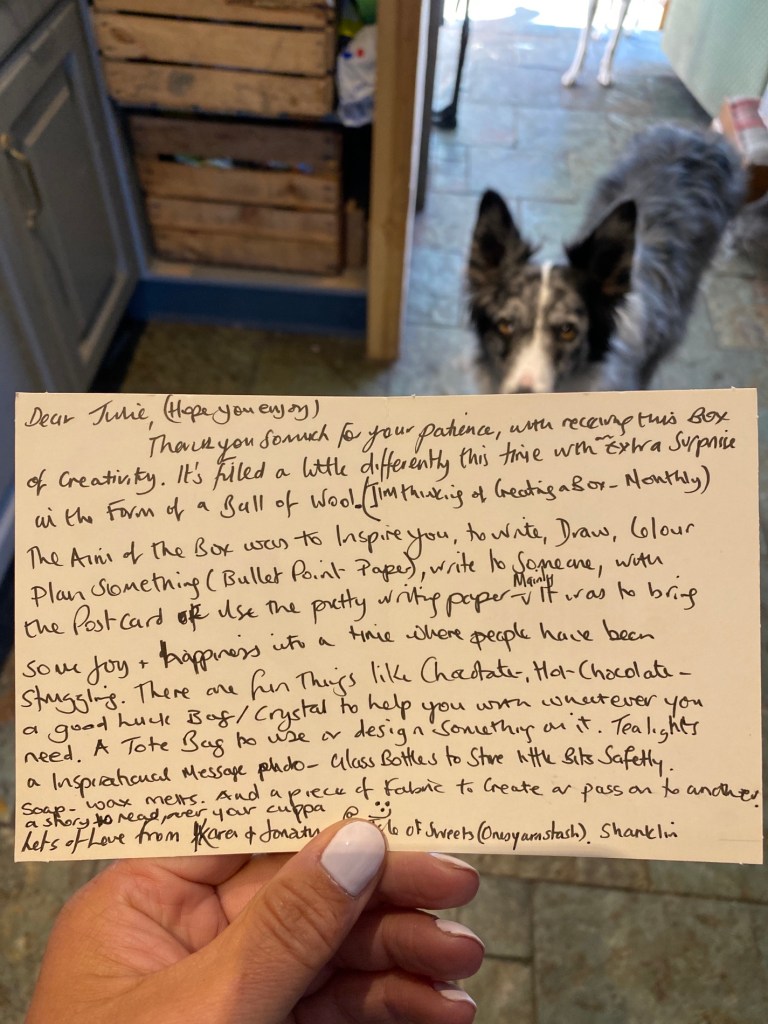 Dear Julie, (Hope you enjoy)
Thank you so much for your patience, with receiving this Box
of Creativity. It's filled a little differently this time with Extra Surprise
in the Form of a Ball of Wool. (I'm thinking of Creating a Box - Monthly)
The Aim of the Box was to Inspire you, to write, Draw, Colour
Plan something (Bullet Point Paper), write to Someone, with
the Postcard or Use the pretty writing paper - Mainly It was to bring
some Joy + happiness into a time where people have been
Struggling. There are fun Things like Chocolate, Hot-Chocolate -
a good luck Bag/Crystal to help you with whatever you
need. A Tote Bag to use or design something on it. Tealights
a Inspirational Message photo - Glass Bottles to Store little Bits Safetly.
Soap - wax melts. And a piece of Fabric to Create or pass on to another.
a story to read, over your cuppa
Lots of Love from Karen & of Sweets (Oneoyarnstash). Shanklin